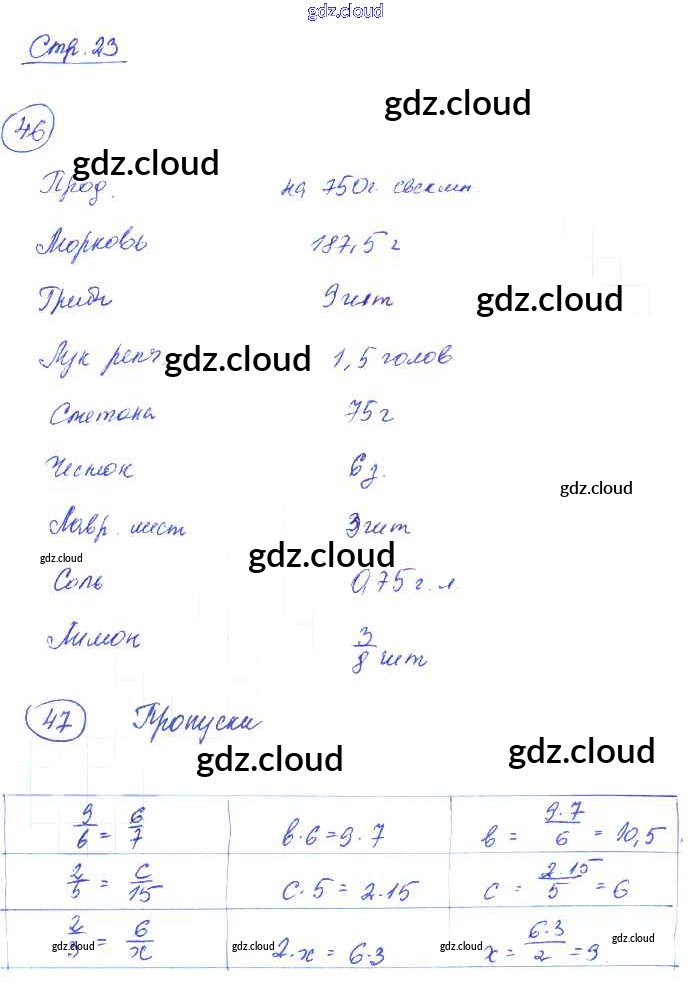 gdz.cloud
Стр. 23
gdz.cloud
46
gdz.cloud
Прод. на 750г. свеклы
Морковь 187,5 г
Грибы 9 шт
gdz.cloud
Лук репч 1,5 голов
gdz.cloud
Сметана 75 г
Чеснок 6 д.
gdz.cloud
Лавр. лист 3 шт
gdz.cloud gdz.cloud
Соль 0,75 г. л.
Лимон 3/8 шт
47 Пропуски
gdz.cloud gdz.cloud
9/6 = 6/7 в·6=9·7 в = 9·7/6 = 10,5
2/5 = с/15 с·5=2·15 с = 2·15/5 = 6
2/3 = 6/х 2·х = 6·3 х = 6·3/2 = 9
gdz.cloud gdz.cloud gdz.cloud gdz.cloud